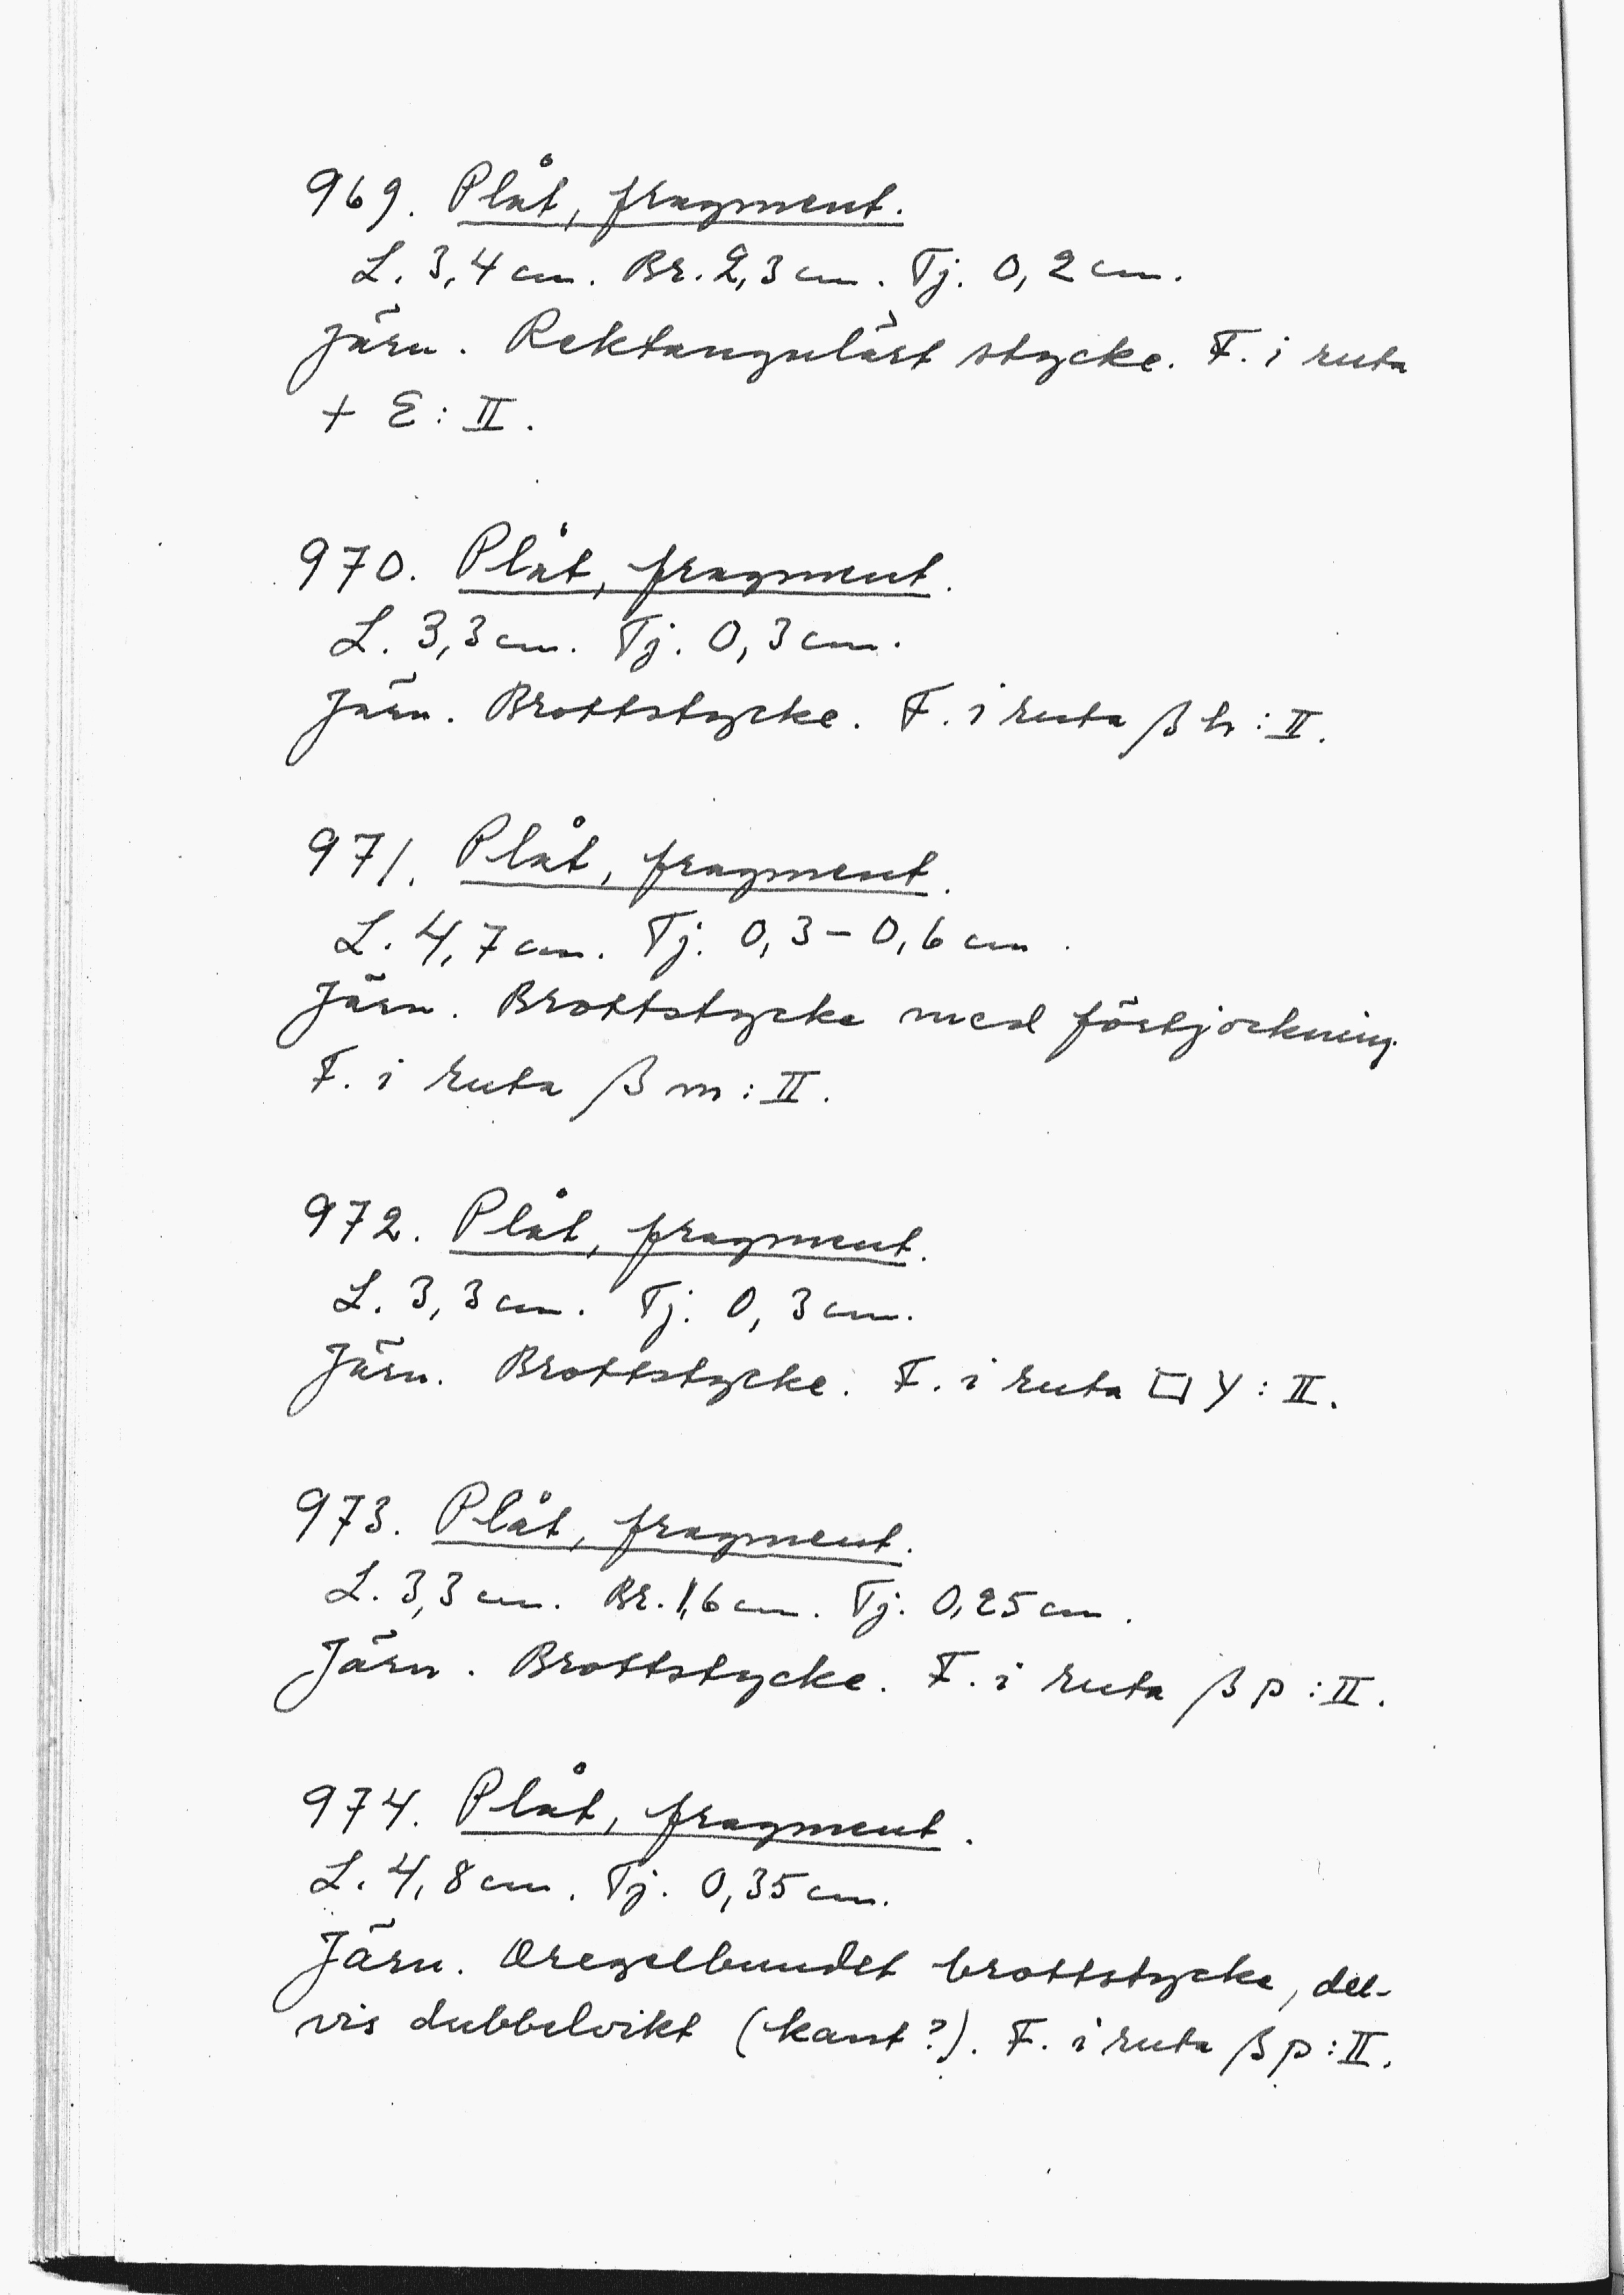 969. Plåt, fragment.
L. 3,4 cm. Br. 2,3 cm. Tj. 0,2 cm.
Järn. Rektangulärt stycke. F. i ruta
+ E : II.
970. Plåt, fragment.
L. 3,3 cm. Tj. 0,3 cm.
Järn. Brottstycke. F. i ruta β h : II.
971. Plåt, fragment.
L. 4,7 cm. Tj. 0,3 – 0,6 cm.
Järn. Brottstycke med förtjockning.
F. i ruta β m : II.
972. Plåt, fragment.
L. 3,3 cm. Tj. 0,3 cm.
Järn. Brottstycke. F. i ruta □ Y : II.
973. Plåt, fragment.
L. 3,3 cm. Br. 1,6 cm. Tj. 0,25 cm.
Järn. Brottstycke. F. i ruta β p : II.
974. Plåt, fragment.
L. 4,8 cm. Tj. 0,35 cm.
Järn. Oregelbundet brottstycke, del-
vis dubbelvikt (kant?). F. i ruta β p : II.